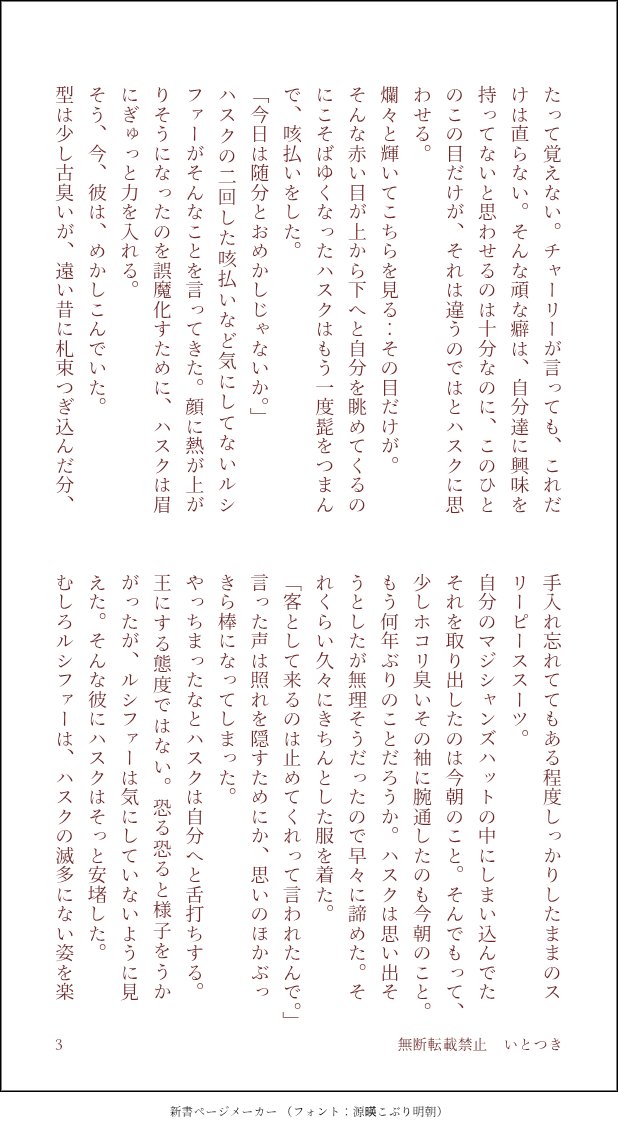 たって覚えない。チャーリーが言っても、これだ
けは直らない。そんな頑な癖は、自分達に興味を
持ってないと思わせるのは十分なのに、このひと
のこの目だけが、それは違うのではとハスクに思
わせる。
爛々と輝いてこちらを見る…その目だけが。
そんな赤い目が上から下へと自分を眺めてくるの
にこそばゆくなったハスクはもう一度髭をつまん
で、咳払いをした。
「今日は随分とおめかしじゃないか。」
ハスクの二回した咳払いなど気にしてないルシ
ファーがそんなことを言ってきた。顔に熱が上が
りそうになったのを誤魔化すために、ハスクは眉
にぎゅっと力を入れる。
そう、今、彼は、めかしこんでいた。
型は少し古臭いが、遠い昔に札束つぎ込んだ分、
手入れ忘れててもある程度しっかりしたままのス
リーピーススーツ。
自分のマジシャンズハットの中にしまい込んでた
それを取り出したのは今朝のこと。そんでもって、
少しホコリ臭いその袖に腕通したのも今朝のこと。
もう何年ぶりのことだろうか。ハスクは思い出そ
うとしたが無理そうだったので早々に諦めた。そ
れくらい久々にきちんとした服を着た。
「客として来るのは止めてくれって言われたんで。」
言った声は照れを隠すためにか、思いのほかぶっ
きら棒になってしまった。
やっちまったなとハスクは自分へと舌打ちする。
王にする態度ではない。恐る恐ると様子をうか
がったが、ルシファーは気にしていないように見
えた。そんな彼にハスクはそっと安堵した。
むしろルシファーは、ハスクの滅多にない姿を楽
無断転載禁止　いとつき
3
新書ページメーカー（フォント：源暎こぶり明朝）